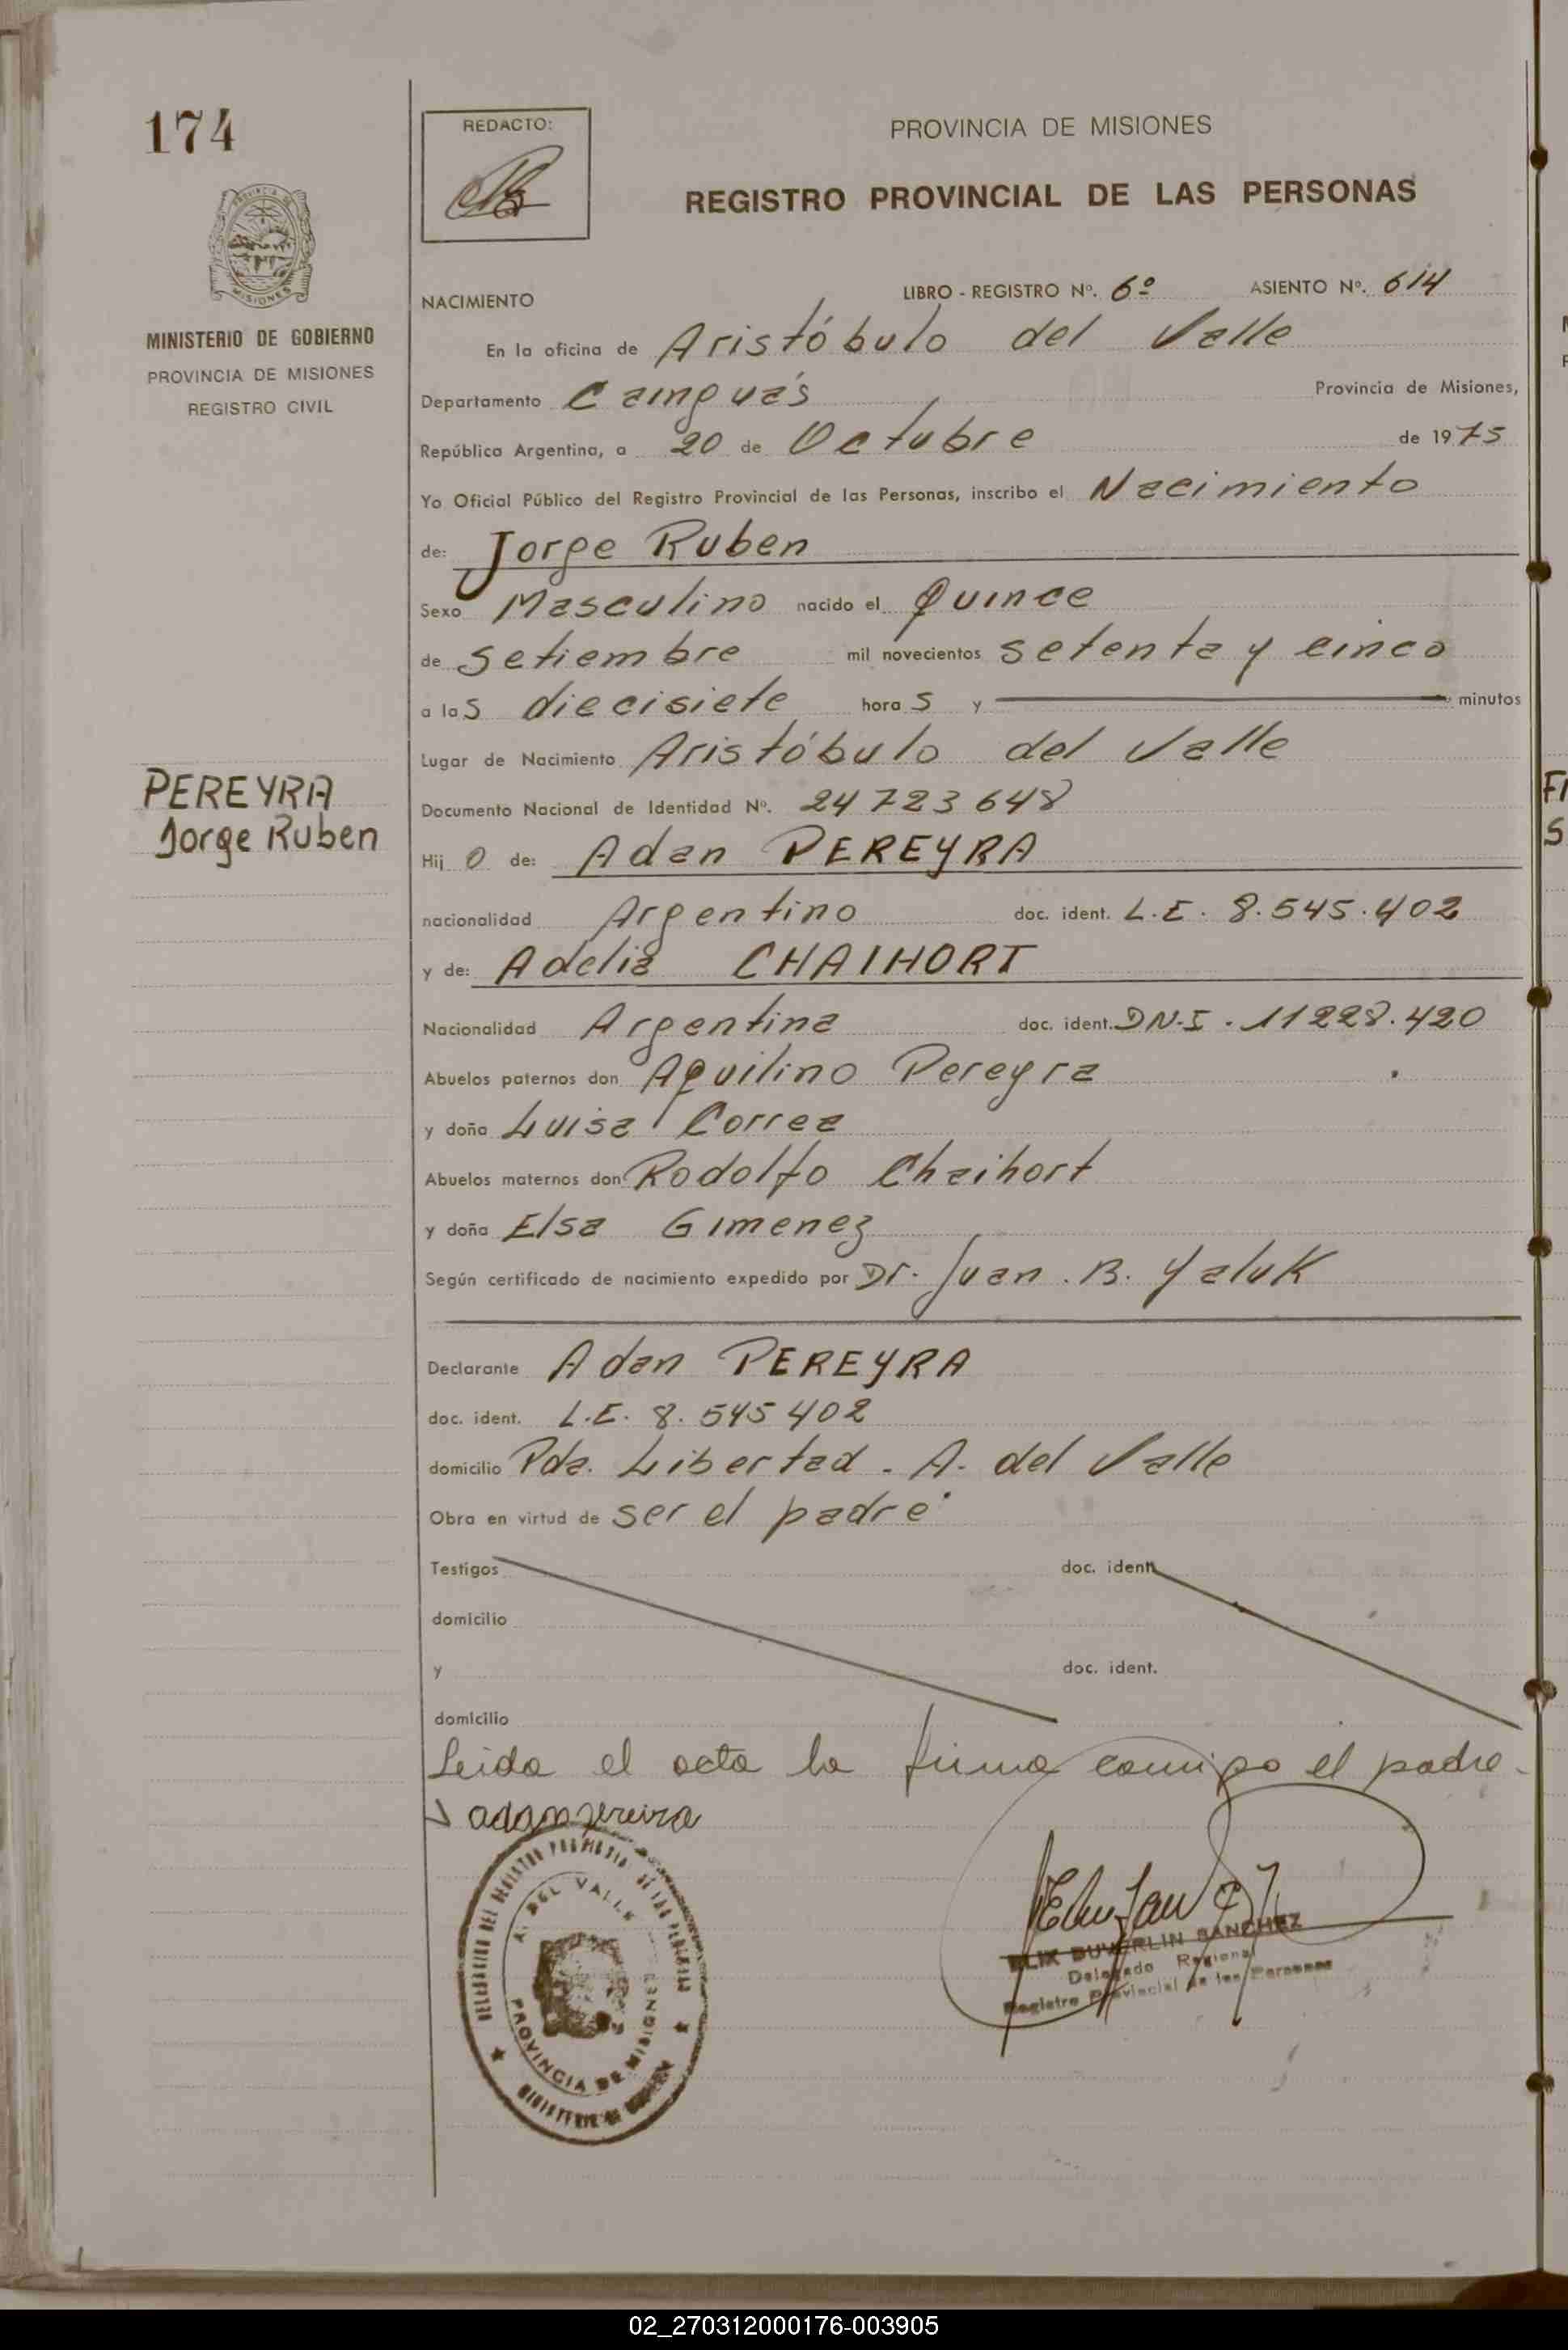 174
MINISTERIO DE GOBIERNO
PROVINCIA DE MISIONES
REGISTRO CIVIL
PEREYRA
Jorge Ruben
REDACTO:
PROVINCIA DE MISIONES
REGISTRO PROVINCIAL DE LAS PERSONAS
NACIMIENTO LIBRO - REGISTRO Nº. 6º ASIENTO Nº. 614
En la oficina de Aristóbulo del Valle
Departamento Cainguás Provincia de Misiones,
República Argentina, a 20 de Octubre de 1975
Yo Oficial Público del Registro Provincial de las Personas, inscribo el Nacimiento
de: Jorge Ruben
Sexo Masculino nacido el Quince
de Setiembre mil novecientos setenta y cinco
a las diecisiete horas y minutos
Lugar de Nacimiento Aristóbulo del Valle
Documento Nacional de Identidad Nº. 24723648
Hijo de: Adan PEREYRA
nacionalidad Argentino doc. ident. L.E. 8.545.402
y de: Adelia CHAIHORT
Nacionalidad Argentina doc. ident. DN.I. 11228.420
Abuelos paternos don Aquilino Pereyra
y doña Luisa Correa
Abuelos maternos don Rodolfo Chaihort
y doña Elsa Gimenez
Según certificado de nacimiento expedido por Dr. Juan. B. Yaluk
Declarante Adan PEREYRA
doc. ident. L.E. 8.545402
domicilio Pda. Libertad - A. del Valle
Obra en virtud de ser el padre
Testigos doc. ident.
domicilio
y doc. ident.
domicilio
Leida el acta la firma conmigo el padre.
adan pereira
DELEGACION DEL REGISTRO PROVINCIAL DE LAS PERSONAS
A. DEL VALLE
PROVINCIA DE MISIONES
MINISTERIO DE GOBIERNO
ELIX DUVERLIN SANCHEZ
Delegado Regional
Registro Provincial de las Personas
02_270312000176-003905